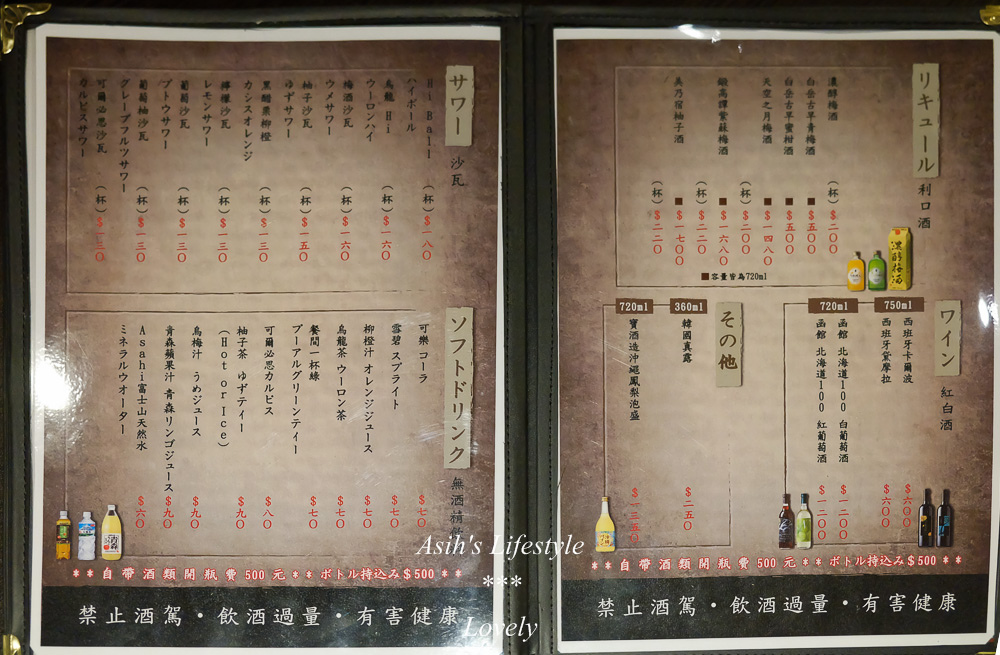 サワー 沙瓦
Hi Ball (杯) $一八〇
ハイボール
烏龍 Hi (杯) $一六〇
ウーロンハイ
梅酒沙瓦 (杯) $一六〇
ウメサワー
柚子沙瓦 (杯) $一五〇
ゆずサワー
黑醋栗柳橙 (杯) $一三〇
カシスオレンジ
檸檬沙瓦 (杯) $一三〇
レモンサワー
葡萄沙瓦 (杯) $一三〇
ブトウサワー
葡萄柚沙瓦 (杯) $一三〇
グレープフルツサワー
可爾必思沙瓦 (杯) $一三〇
カルピスサワー
ソフトドリンク 無酒精飲
可樂 コーラ $七〇
雪碧 スプライト $七〇
柳橙汁 オレンジジュース $七〇
烏龍茶 ウーロン茶 $七〇
餐間一杯綠 $七〇
プーアルグリーンティー
可爾必思カルピス $八〇
柚子茶 ゆずティー $九〇
(Hot or Ice)
烏梅汁 うめジュース $九〇
青森蘋果汁 青森リンゴジュース $九〇
Asahi富士山天然水 $六〇
ミネラルウオーター
**自帶酒類開瓶費 500 元**ボトル持込み$500**
禁止酒駕・飲酒過量・有害健康
リキュール 利口酒
濃醇梅酒 (杯) $二〇〇
白岳古早青梅酒 ■$五〇〇
白岳古早蜜柑酒 ■$五〇〇
天空之月梅酒 ■$一四八〇
(杯) $二〇〇
鍛高譚紫蘇梅酒 ■$一六八〇
(杯) $二二〇
美乃宿柚子酒 ■$一七〇〇
(杯) $二二〇
■容量皆為720ml
ワイン 紅白酒
750ml
西班牙卡爾波 $六〇〇
西班牙黛摩拉 $六〇〇
720ml
函館 北海道100 白葡萄酒 $一二〇〇
函館 北海道100 紅葡萄酒 $一二〇〇
その他
360ml
韓國真露 $二五〇
720ml
寶酒造沖繩鳳梨泡盛 $一三五〇
**自帶酒類開瓶費 500 元**ボトル持込み$500**
禁止酒駕・飲酒過量・有害健康
Asih's Lifestyle
***
Lovely